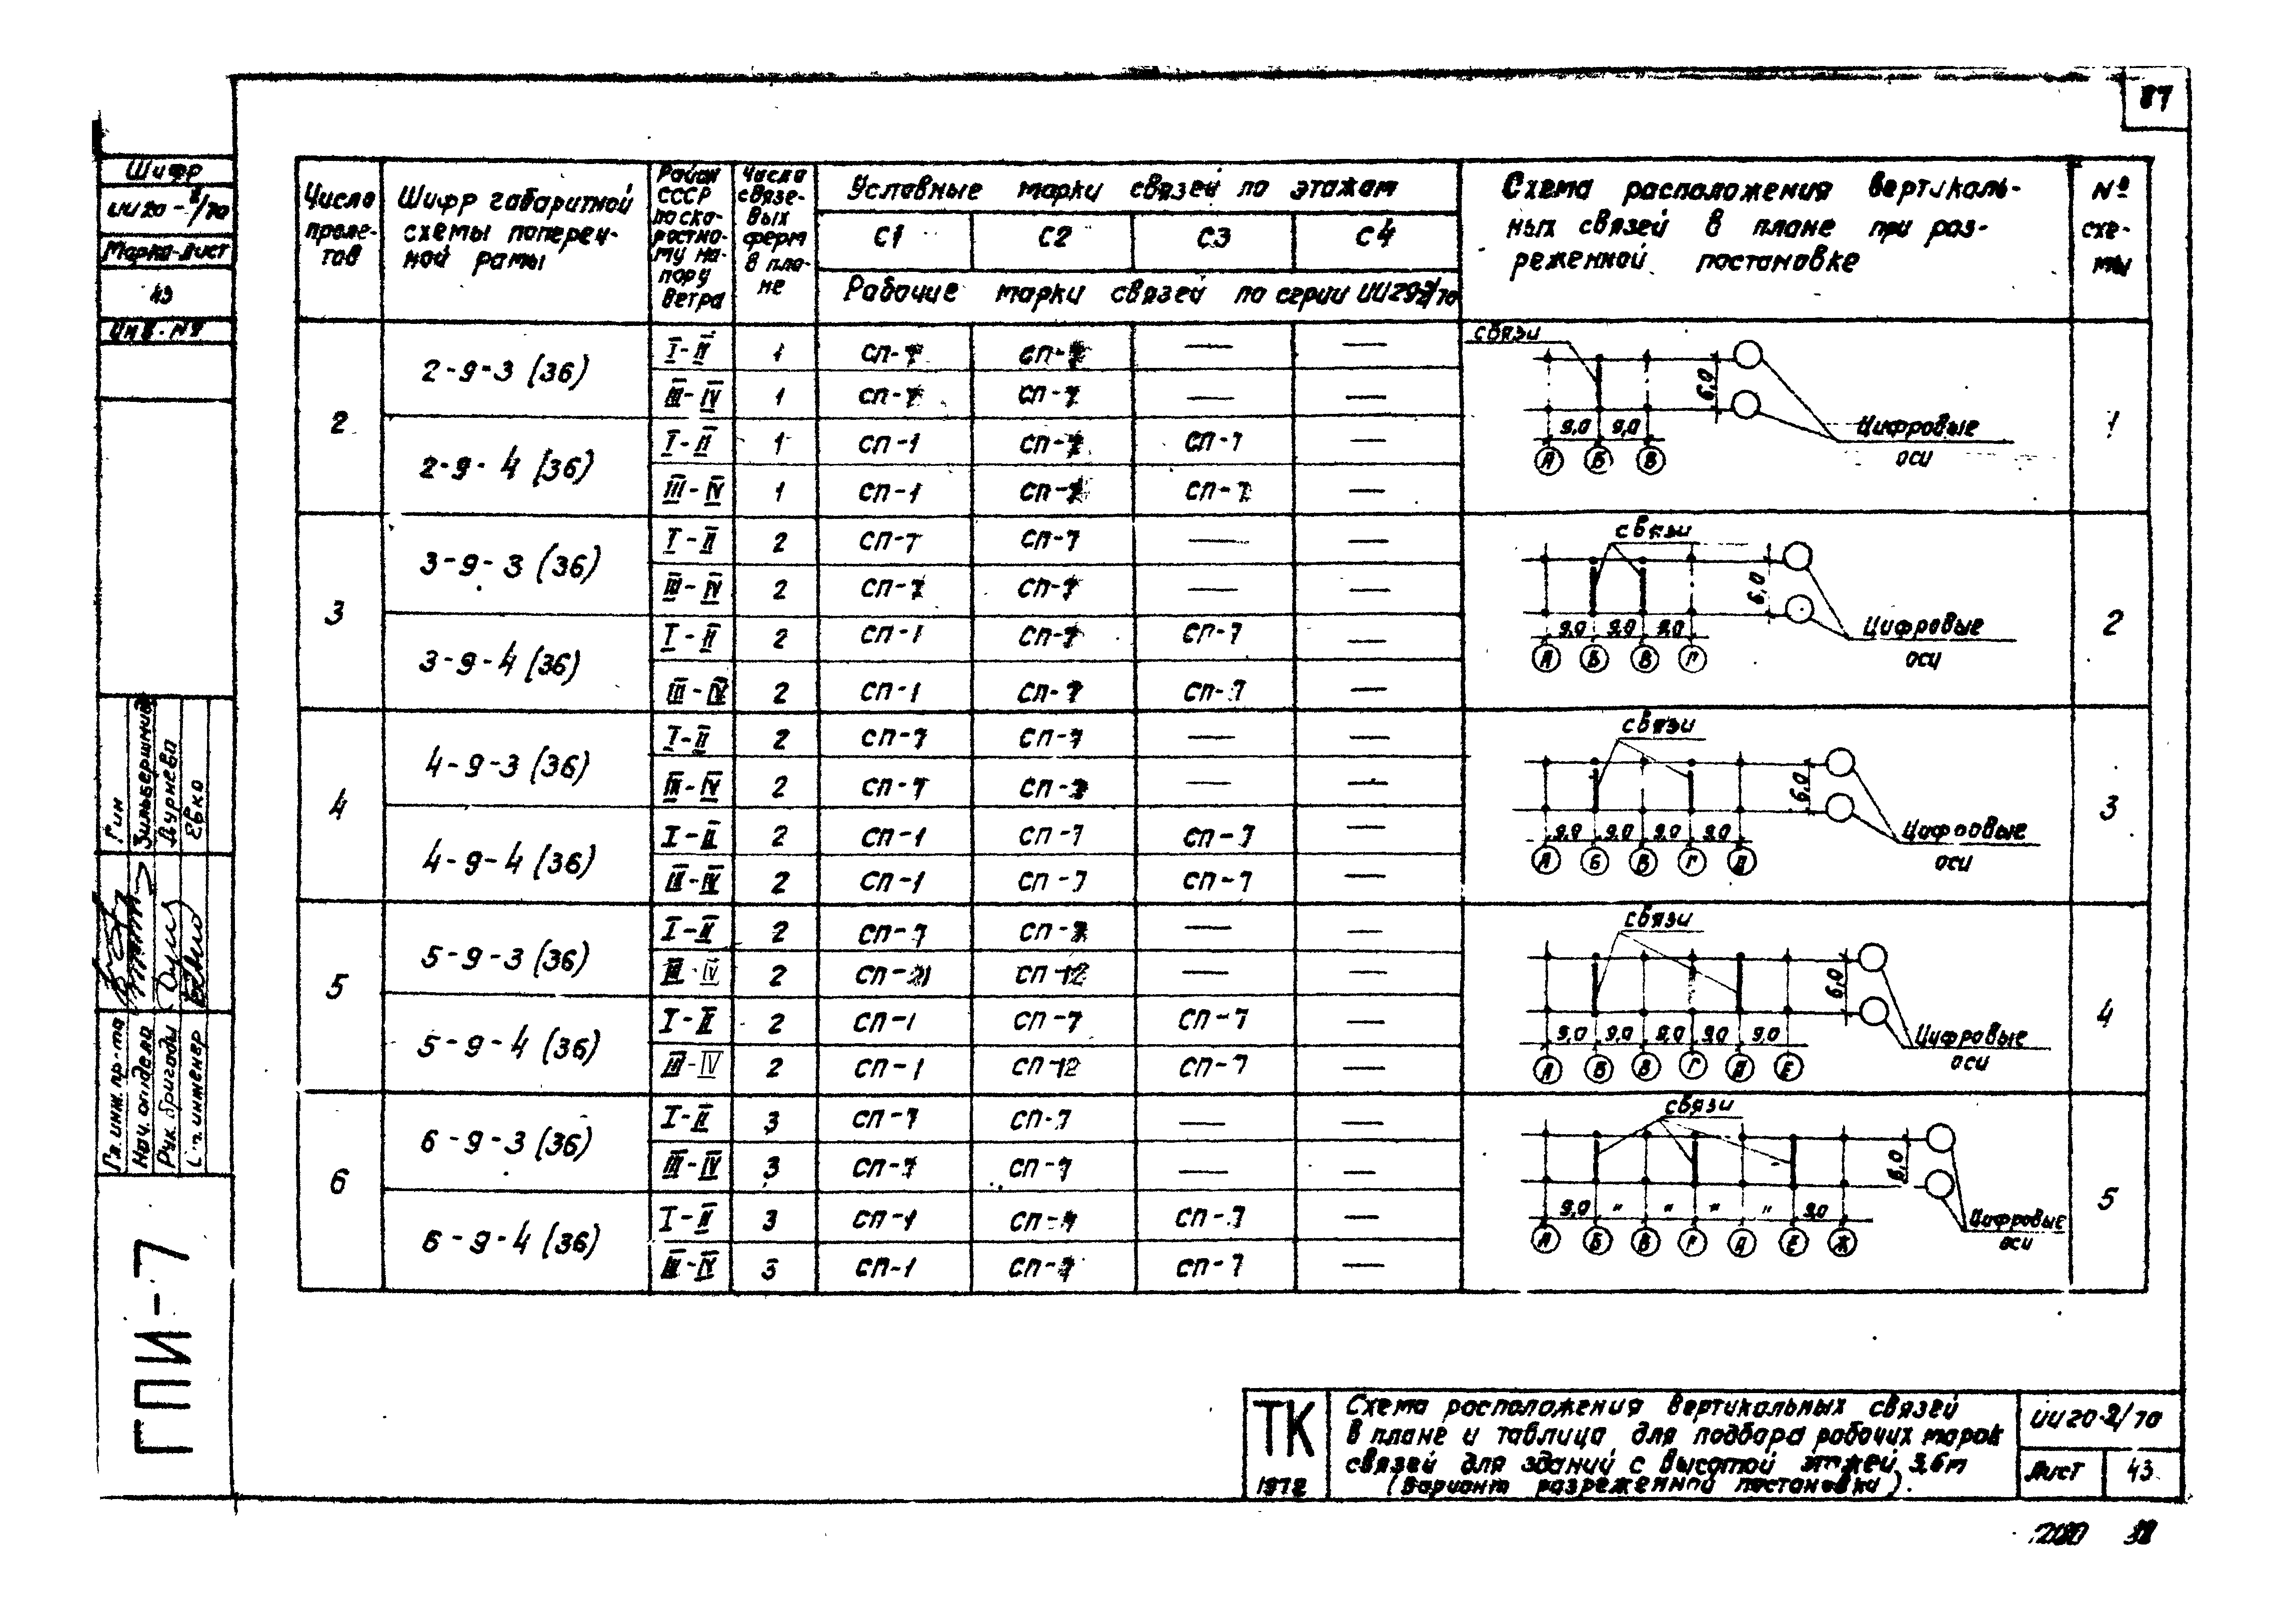 87
Шифр
ИИ20-2/70
Марка-лист
43
Инв. №
Гл. инж. пр-та
Нач. отдела
Рук. бригады
Ст. инженер
Гин
Дурнева
Евко
ГПИ-7
Число пролетов
Шифр габаритной схемы поперечной рамы
Район СССР по скоростному напору ветра
Число связевых ферм в плане
Условные марки связей по этажам
С1 С2 С3 С4
Рабочие марки связей по серии ИИ29-2/70
Схема расположения вертикальных связей в плане при разреженной постановке
№ схемы
2
2-9-3 (36)
I-II 1 СП-7 СП-7 — —
III-IV 1 СП-7 СП-7 — —
2-9-4 (36)
I-II 1 СП-1 СП-7 СП-7 —
III-IV 1 СП-1 СП-7 СП-7 —
связи
6,0
9,0 9,0
А Б В
Цифровые
оси
1
3
3-9-3 (36)
I-II 2 СП-7 СП-7 — —
III-IV 2 СП-7 СП-7 — —
3-9-4 (36)
I-II 2 СП-1 СП-7 СП-7 —
III-IV 2 СП-1 СП-7 СП-7 —
связи
6,0
9,0 9,0 9,0
А Б В Г
Цифровые
оси
2
4
4-9-3 (36)
I-II 2 СП-7 СП-7 — —
III-IV 2 СП-7 СП-7 — —
4-9-4 (36)
I-II 2 СП-1 СП-7 СП-7 —
III-IV 2 СП-1 СП-7 СП-7 —
связи
6,0
9,0 9,0 9,0 9,0
А Б В Г Д
Цифровые
оси
3
5
5-9-3 (36)
I-II 2 СП-7 СП-7 — —
III-IV 2 СП-12 — —
5-9-4 (36)
I-II 2 СП-1 СП-7 СП-7 —
III-IV 2 СП-1 СП-12 СП-7 —
связи
6,0
9,0 9,0 9,0 9,0 9,0
А Б В Г Д Е
Цифровые
оси
4
6
6-9-3 (36)
I-II 3 СП-7 СП-7 — —
III-IV 3 СП-7 СП-7 — —
6-9-4 (36)
I-II 3 СП-1 СП-7 СП-7 —
III-IV 3 СП-1 СП-7 СП-7 —
связи
6,0
9,0 " " " " 9,0
А Б В Г Д Е Ж
Цифровые
оси
5
ТК
1972
Схема расположения вертикальных связей
в плане и таблица для подбора рабочих марок
связей для зданий с высотой этажей 3,6м
(вариант разреженной постановки).
ИИ20-2/70
Лист 43